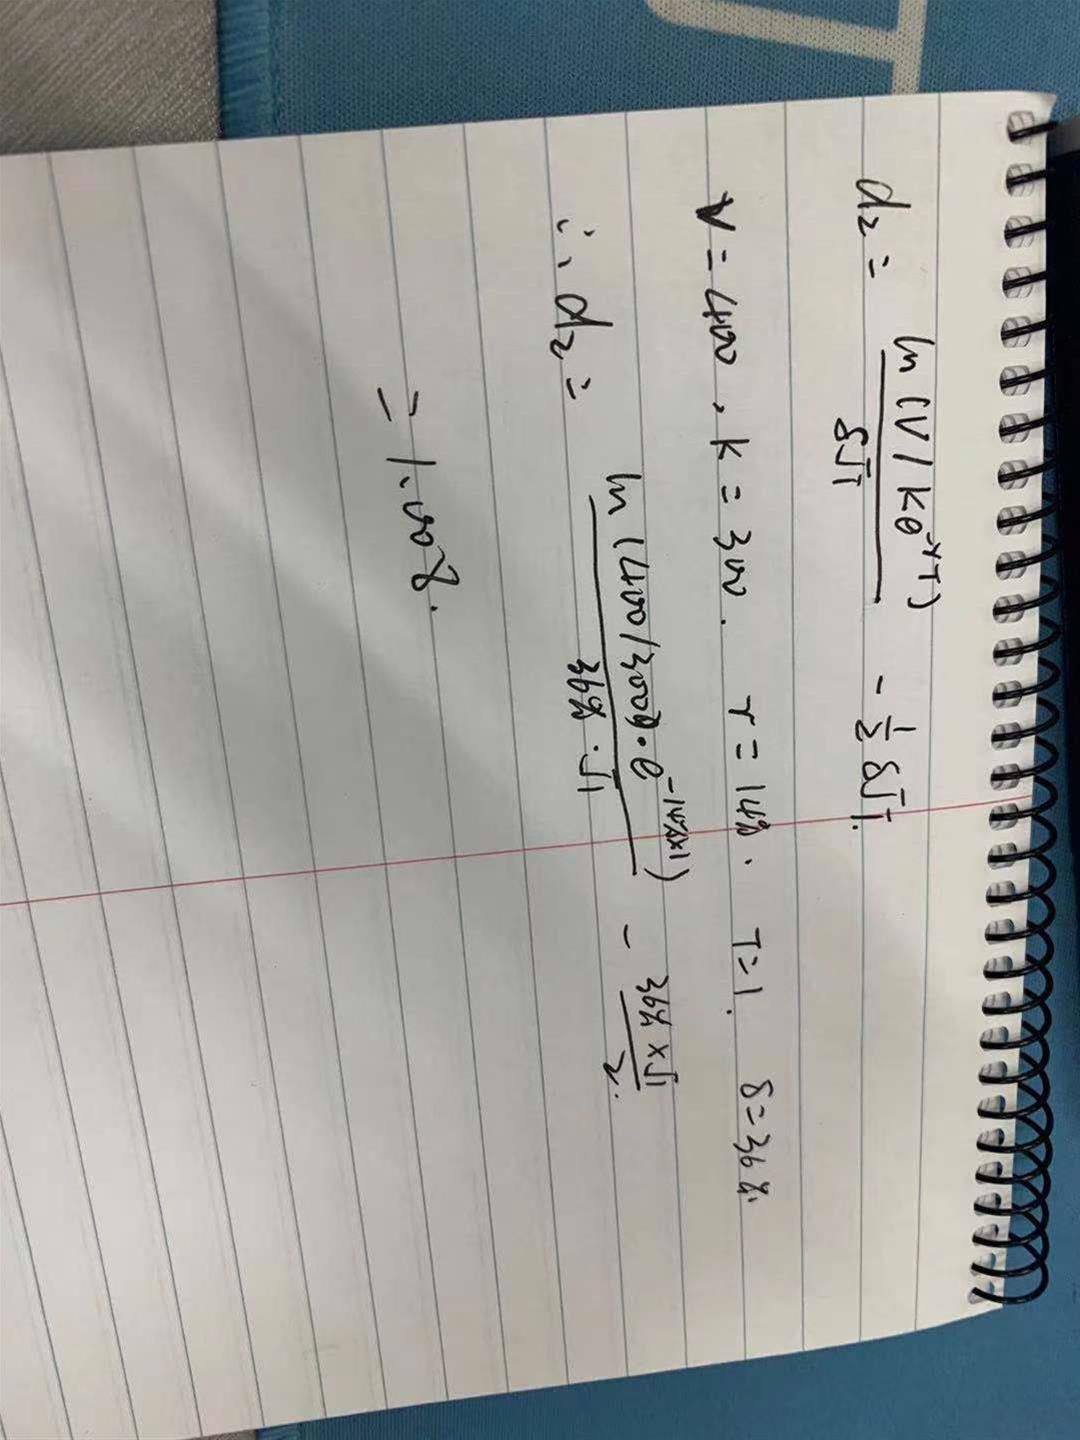 d₂ = ln (V / Ke^-rT) / δ√T - 1/2 δ√T.
V = 400. K = 300. r = 14%. T = 1. δ = 36%.
∴ d₂ = ln (400/300 · e^-14%×1) / 36% · √1 - 36% × √1 / 2.
= 1.008.